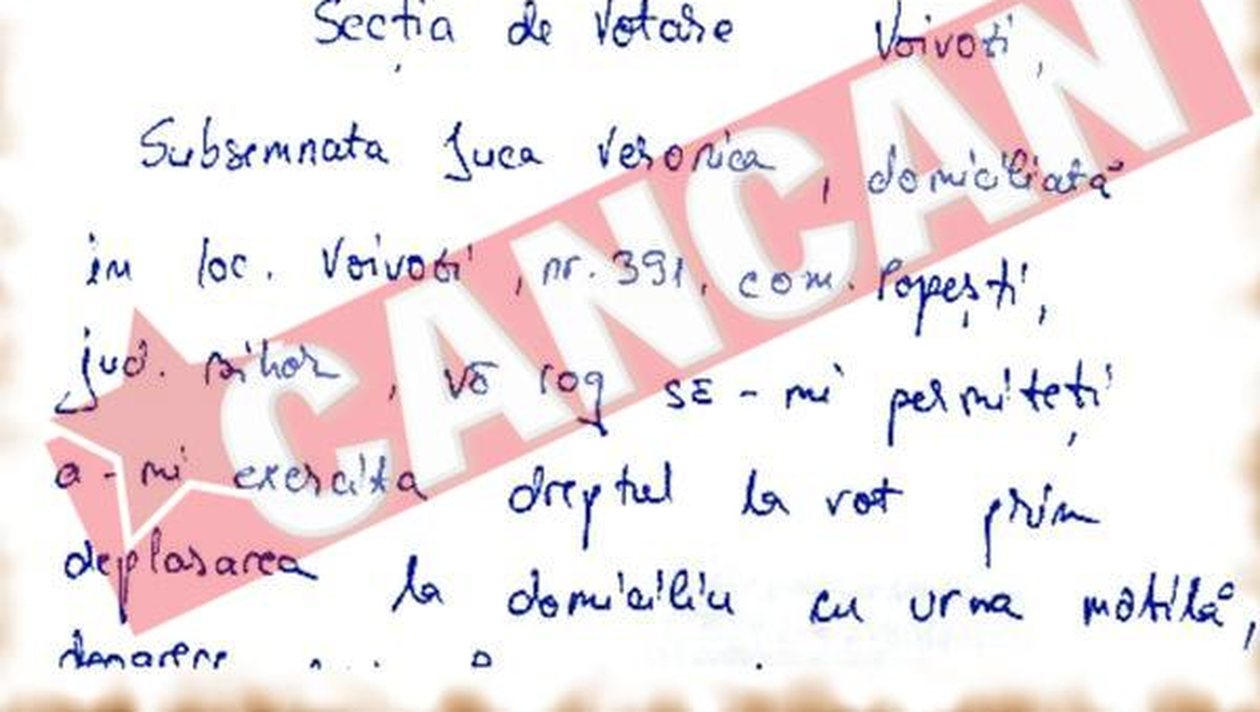 Secția de votare Voivozi,
Subsemnata Juca Veronica, domiciliată
in loc. Voivozi, nr. 391, com. Popești,
jud. Bihor, vă rog să-mi permiteți
a-mi exercita dreptul la vot prin
deplasarea la domiciliu cu urna mobilă,
deoarece
CANCAN